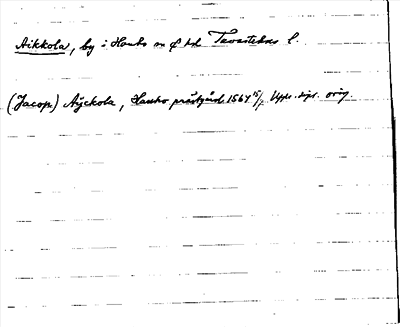 Aikkola, by i Hauho sn o hd Tavastehus l.
(Jacop) Äijckola, Hauho prästgård 1564 15/7 Upps. dipl. orig.